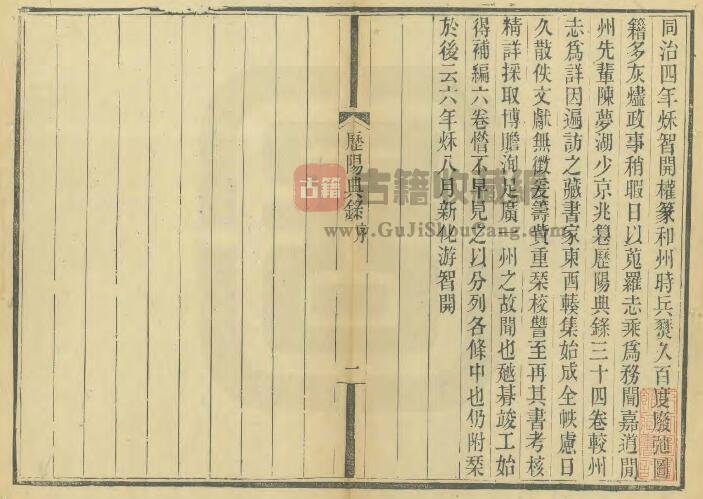 同治四年秌智開權篆和州時兵燹久百度廢弛圖
籍多灰燼政事稍暇日以蒐羅志乘爲務聞嘉道閒
州先輩陳夢湖少京兆纂歷陽典錄三十四卷較州
志爲詳因遍訪之藏書家東西輳集始成全帙慮日
久散佚文獻無徵爰籌貲重栞校讐至再其書考核
精詳採取博贍洵足廣一州之故聞也越朞竣工始
得補編六卷惜不早見之以分列各條中也仍附栞
於後云六年秌八月新化游智開
歷陽典錄 序
一
古籍 古籍收藏網
www.GuJiShouCang.com